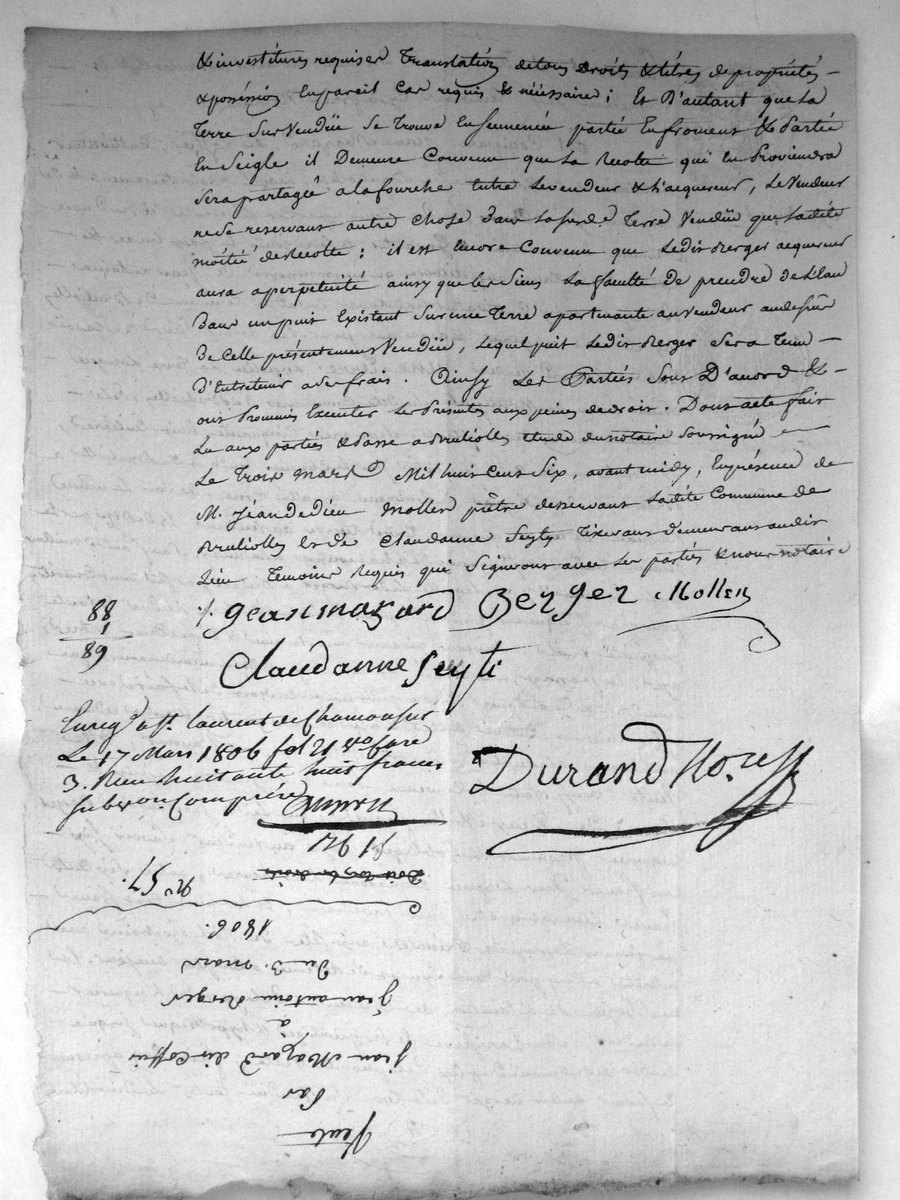 & investitures requises Translation de tous Droits & titres de propriétés
& possession En pareil cas requis & nécessaire ; Et D'autant que La
Terre Sus Vendüe Se Trouve Ensemencée partie En froment & Partie
En Seigle il Demeure Convenu que La Recolte qui En Proviendra
Sera partagée a la fourche Entre Le vendeur & L'acquereur, Le Vendeur
ne Se reservant autre Chose Dans La susd.e Terre Vendüe que Ladite
moitié de Recolte ; il est Encore Convenu que Ledit Berger acquereur
aura a perpetuité ainsy que les Siens La faculté De prendre de L'Eau
Dans un puit Existant Sur une Terre apartenante au vendeur au dessus
De Celle présentement Vendüe, Lequel puit Ledit Berger Sera Tenu
D'Entretenir a Ses frais. Ainsy Les Parties Sont D'acord &
ont Promis Executer Les Présentes aux peines de droit. Dont acte fait
Lu aux parties & Passé a Brullioles étude du notaire Soussigné
Le Trois mars Mil huit Cent Six, avant midy, En présence de
M. Jean dedieu Mollen prêtre desservant Ladite Commune de
Brullioles et de Claudanne Seyty Tixerant demeurant audit
Lieu Temoins Requis qui Signeront avec Les parties & nous notaire
88
1
89
/. jean mazard Berger Mollen
Claudanne Seyti
Enreg.é a St. Laurent de Chamousset
Le 17 Mars 1806 fol 21 v.o Case
3. Reçu huit ante huit francs
Subvon. Comprise
Durand No.re
f1 92
n.o 57.
Vente
Par
jean Mazard dit Coffin
à
jean antoine Berger
Du 3. mars
1806.